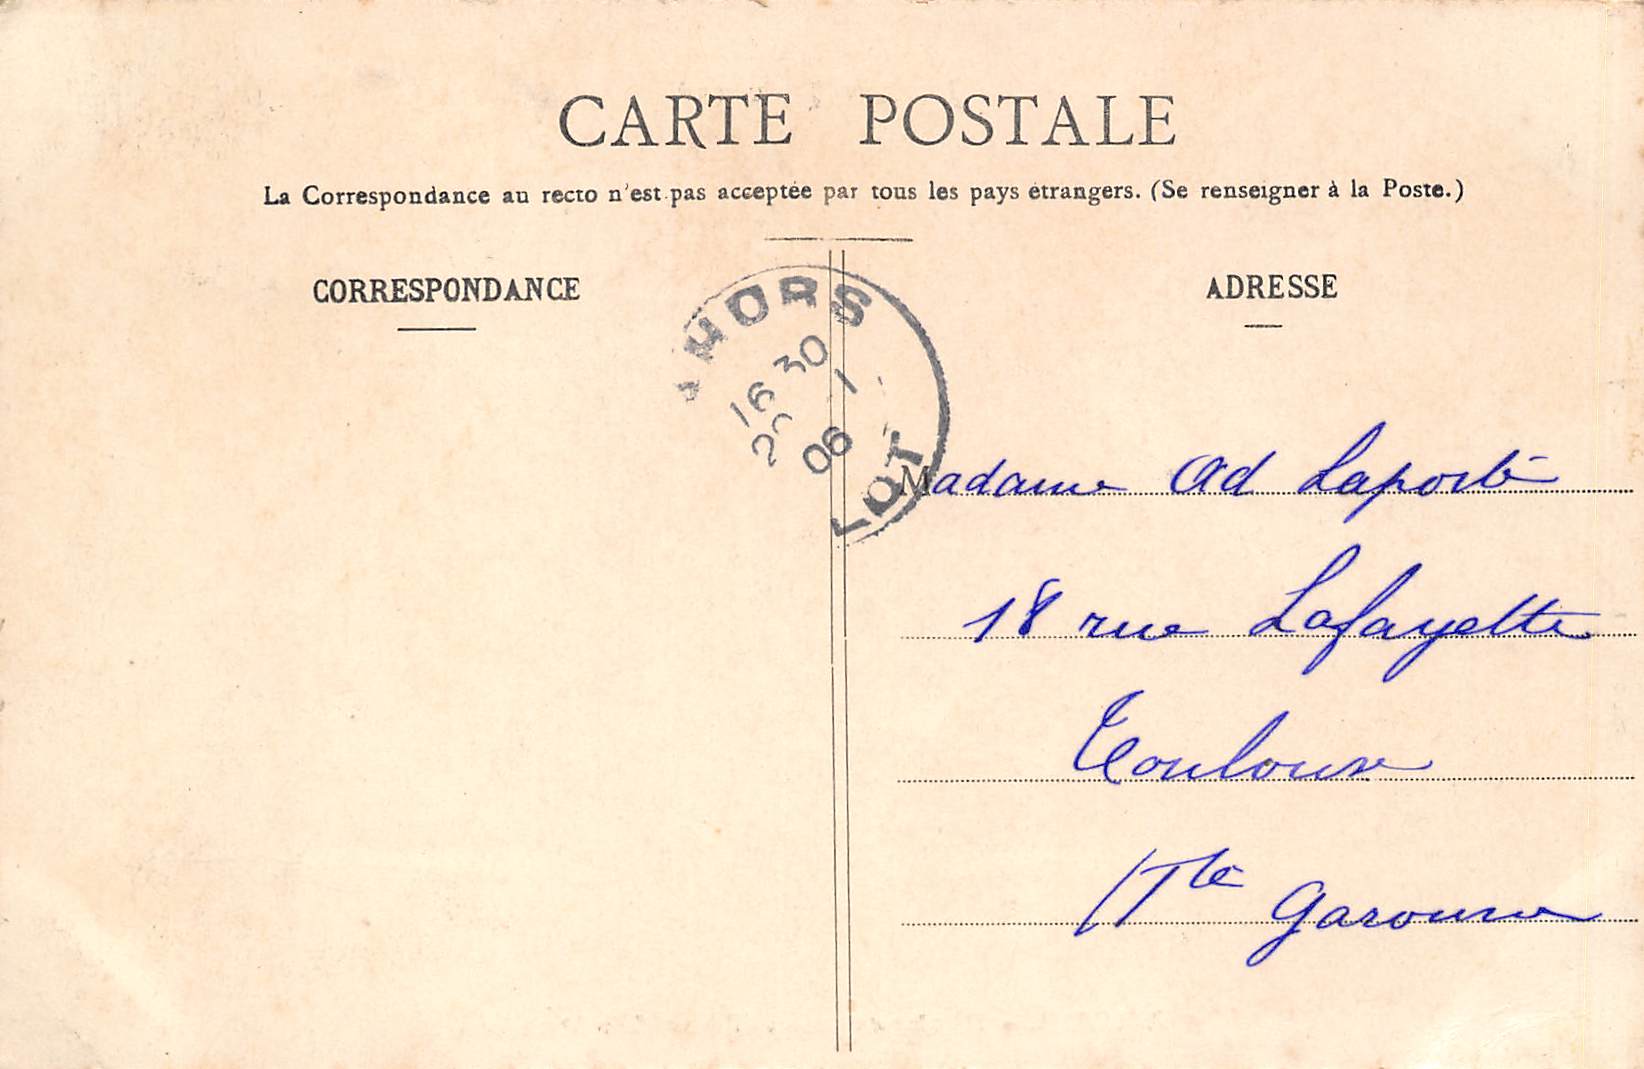 CARTE POSTALE
La Correspondance au recto n'est pas acceptée par tous les pays étrangers. (Se renseigner à la Poste.)
CORRESPONDANCE
ADRESSE
AHORS
16 30
1
06
LOT
Madame Ad Laporte
18 rue Lafayette
Toulouse
Hte Garonne